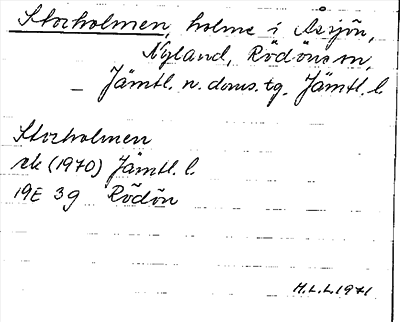 Storholmen, holme i Åsjön,
Nyland, Rödöns sn,
Jämtl. n. doms.tg. Jämtl. l.
Storholmen
rek (1970) Jämtl. l.
19E 3g Rödön
H.L.L. 1971